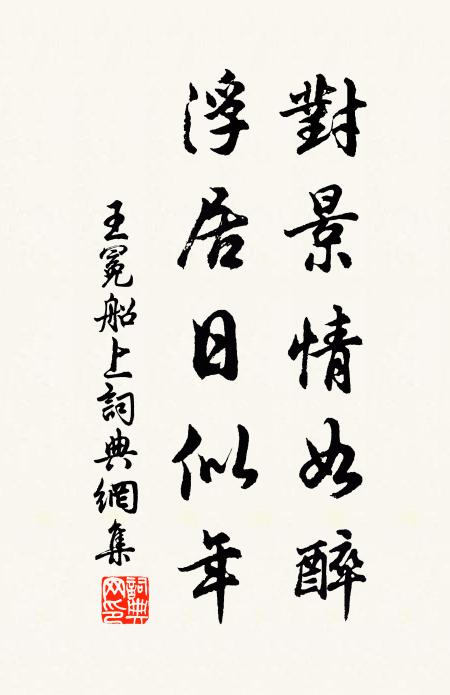 對景情如醉
浮居日似年
王冕船上詞典網集
詞典網印